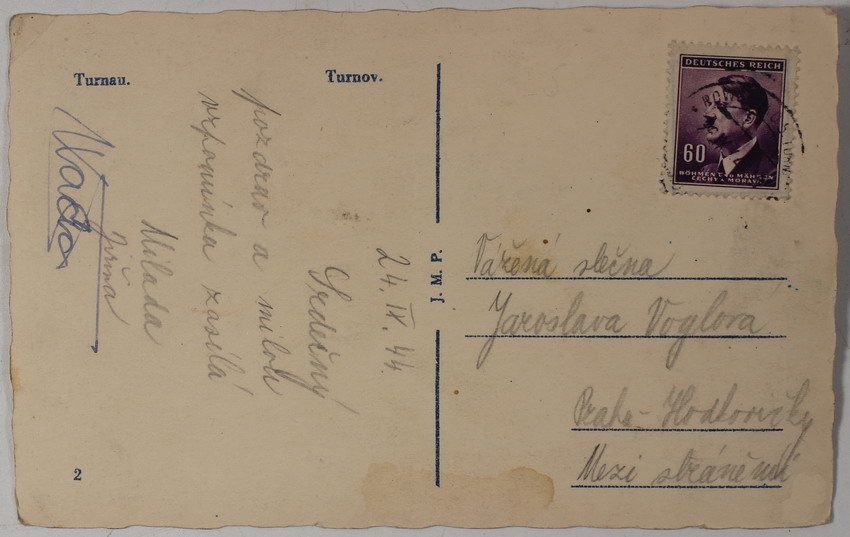 Turnau.
Turnov.
24. IX. 44.
Srdečný
pozdrav a milou
vzpomínku zasílá
Milada
Jiřina
J. M. P.
2
DEUTSCHES REICH
60
BÖHMEN U. MÄHREN
ČECHY A MORAVA
Vážená slečna
Jaroslava Voglová
Praha - Hodkovičky
Mezi stráněmi